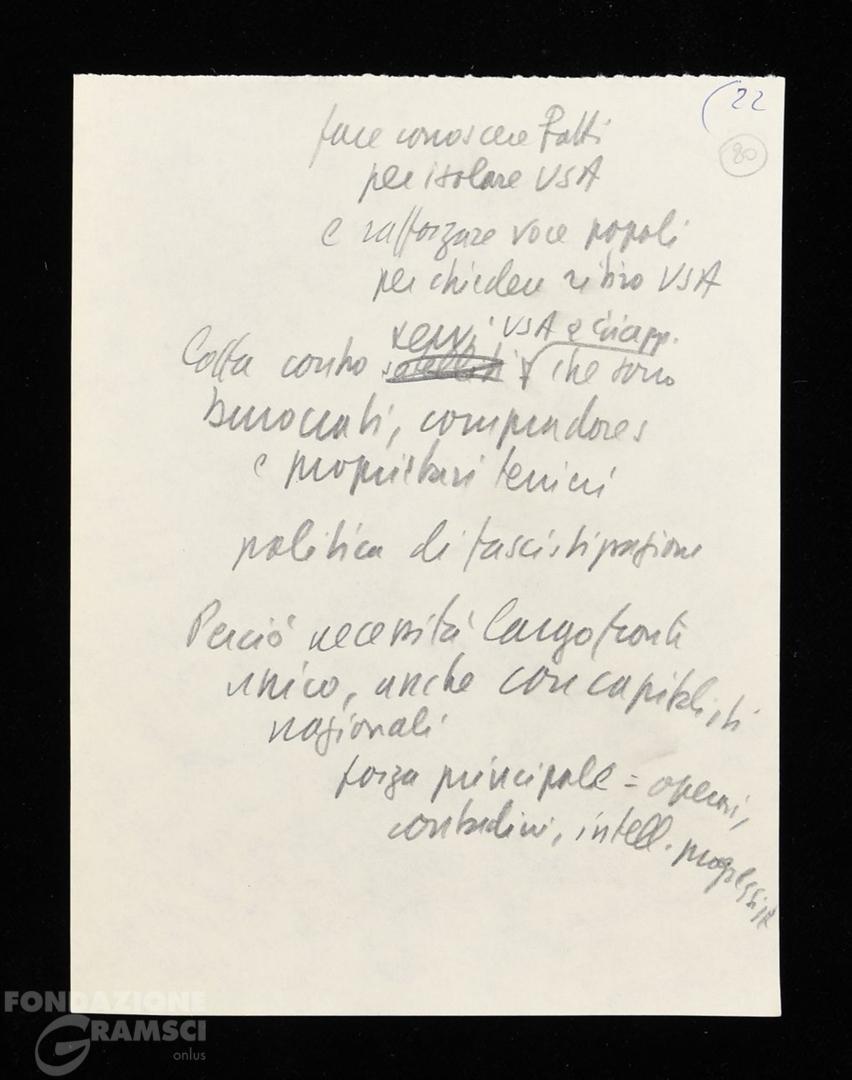 (22
80
fare conoscere Fatti
per isolare USA
e rafforzare voce popoli
per chiedere ritiro USA
servi USA e Giapp.
Lotta contro satelliti che sono
burocrati, compradores
e proprietari terrieri
politica di fascistizzazione
Perciò necessità largo fronte
unico, anche con capitalisti
nazionali
forza principale = operai,
contadini, intell. progressisti
FONDAZIONE
GRAMSCI
onlus